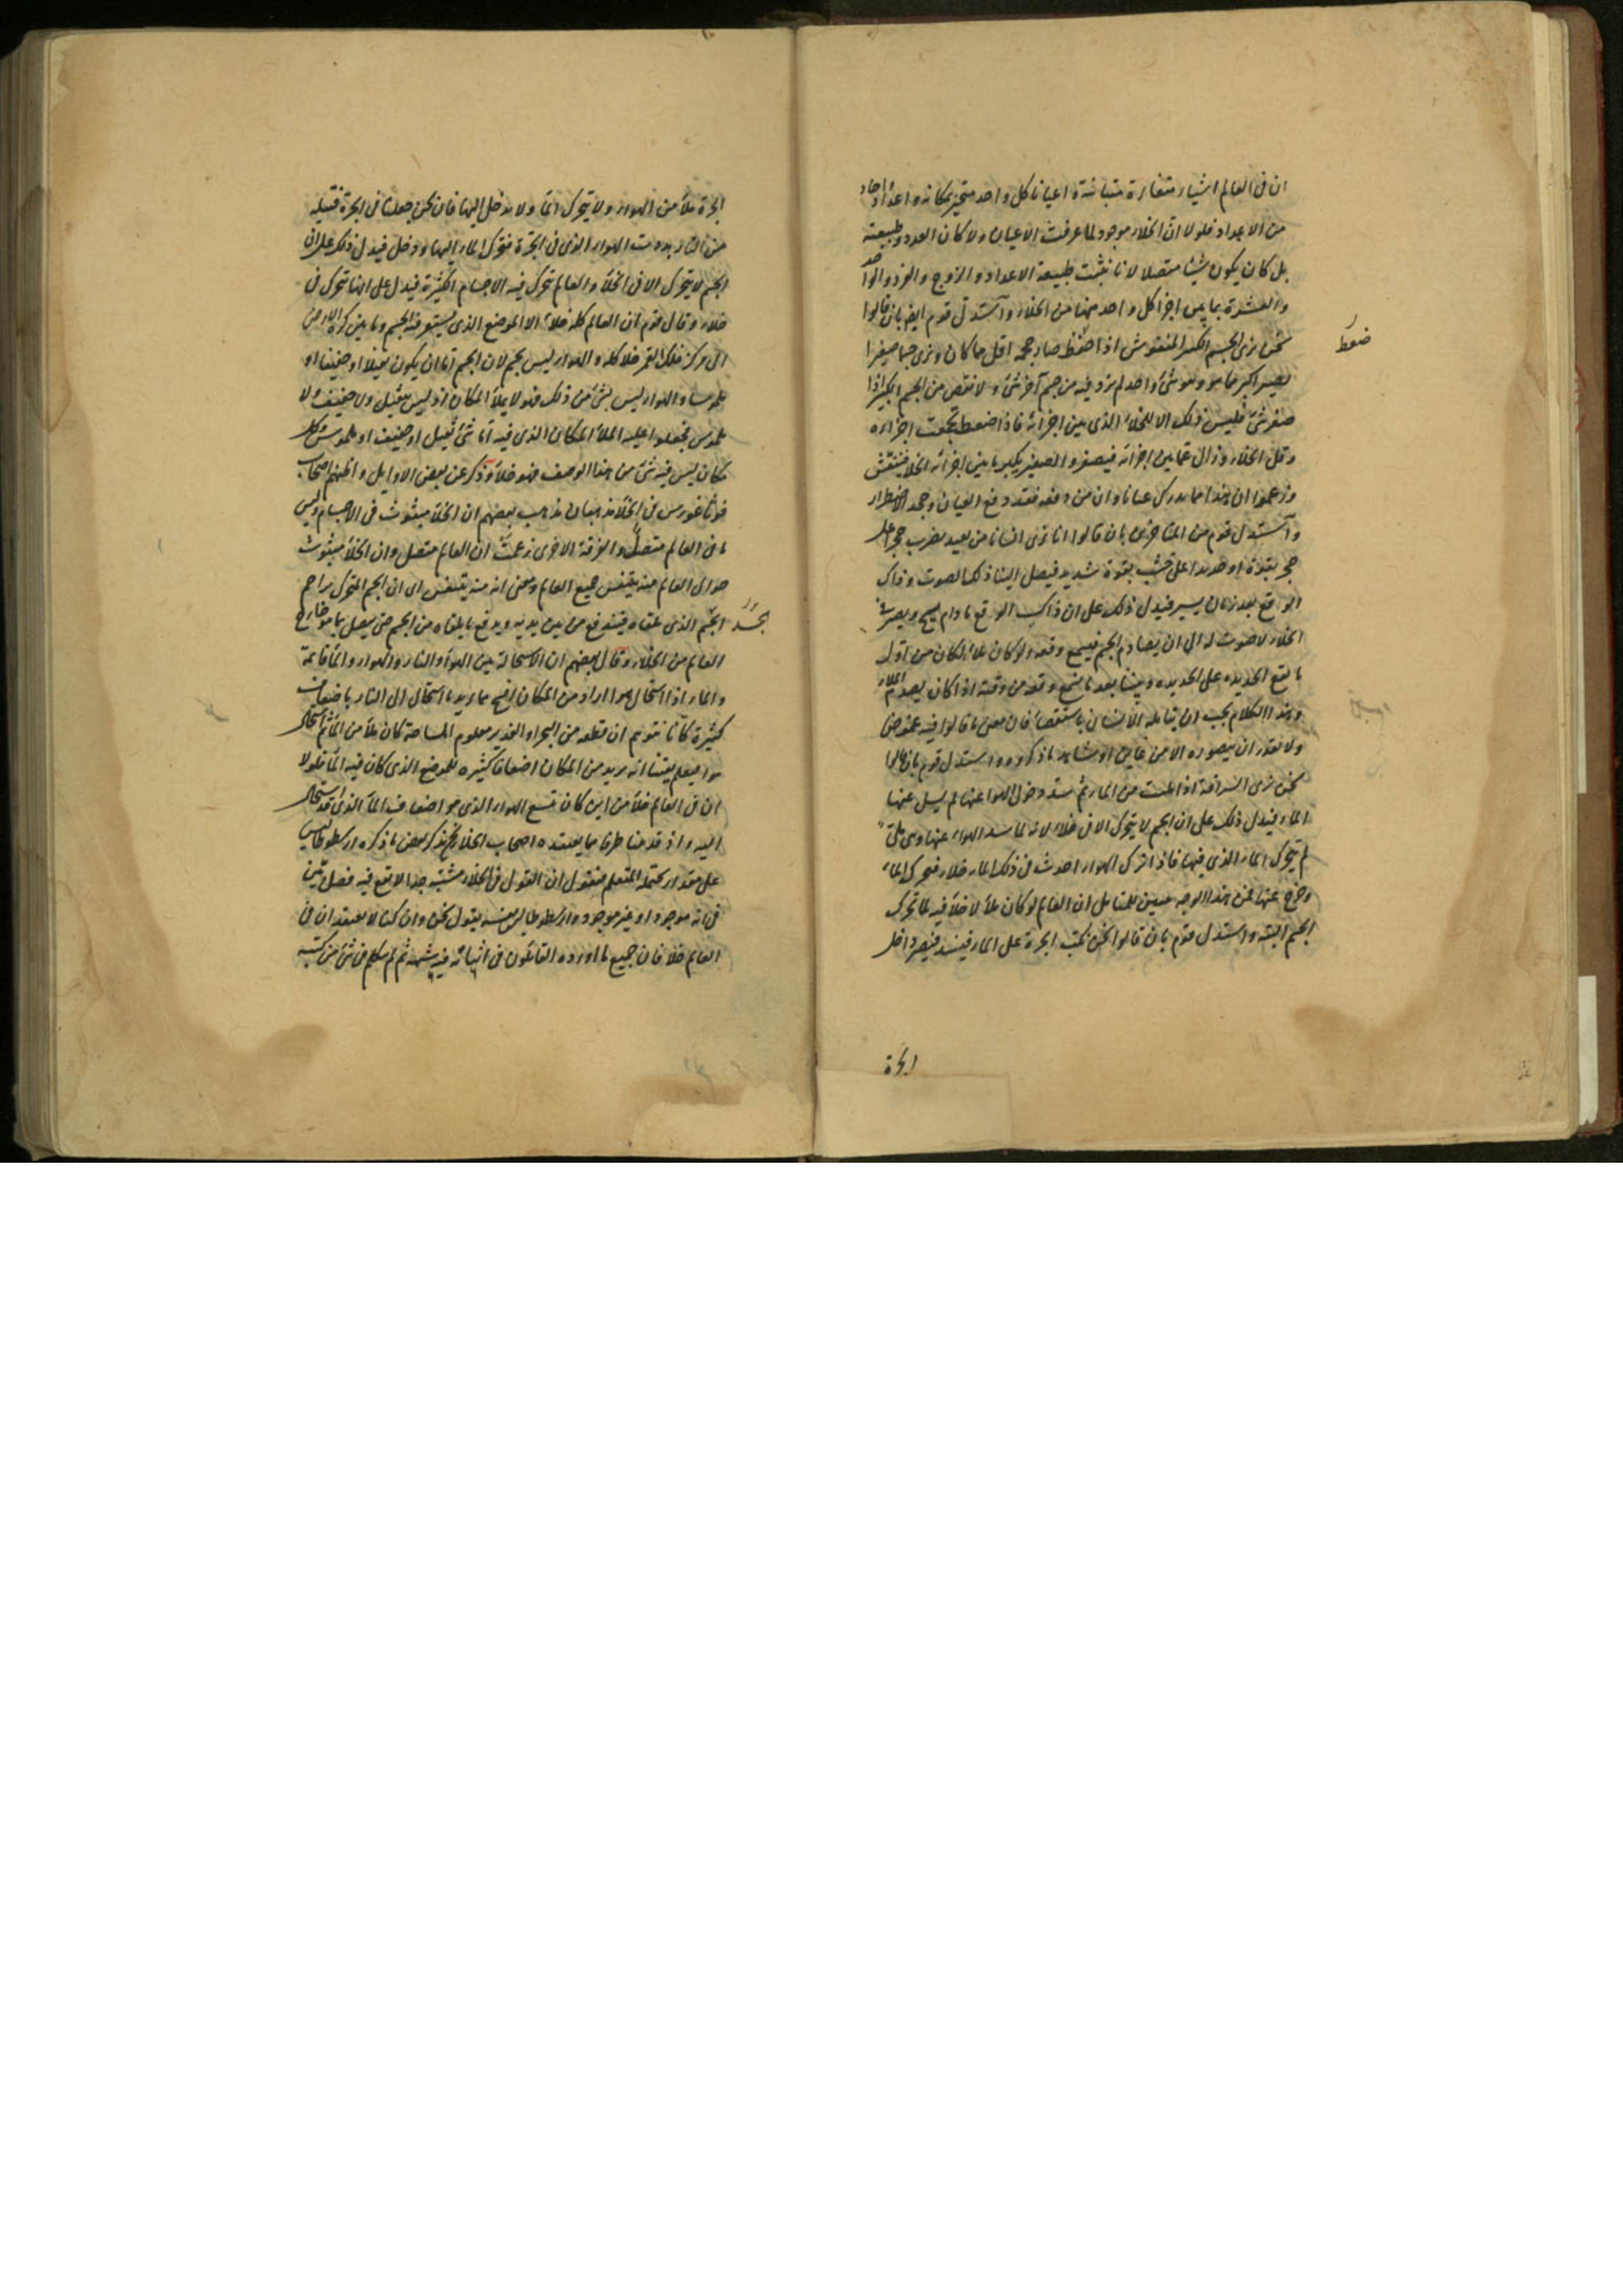 ان فى العالم اشياء متغايرة متباينة واعيانا كل واحد متحيز بمكانه واعدادا احاد
من الاعداد فلولا ان الخلاء موجود لما عرفت الاعيان ولا كان العدد وطبيعته
بل كان يكون شيئا متصلا لانا نثبت طبيعة الاعداد والزوج والفرد والواحد
والعشرة بما بين اجزا كل واحد منها من الخلاء واستدل قوم ايضا بان قالوا
نحن نرى الجسم المنفوش اذا ضغط صار حجمه اقل مما كان ونرى جسما صغيرا
ضغوط
يصير اكبر مما هو وهو شئ واحد لم يزد فيه من جسم آخر شئ ولا نقص من الجسم الكبير اذا
صغر شئ فليس ذلك الا للخلاء الذى بين اجزائه فاذا ضغط تجمعت اجزاءه
وقل الخلاء وزال عما بين اجزائه فيصغر والصغير يكبر بما بين اجزائه الخلاء فينتفش
وزعموا ان هذا مما يدرك عيانا وان من دفعه فقد دفع العيان وجحد الاضطرار
واستدل قوم من المتاخرين بان قالوا انا نرى انسانا من بعيد يضرب حجرا على
حجر بقوة او حديدا على خشب بقوة شديد فيصل الينا ذلك الصوت وذاك
الوقع بعد زمان يسير فيدل ذلك على ان ذاك الوقع ما دام يسيح ويصير فى
الخلاء لا صوت له الى ان يصادم الجسم فيسمع وقعه ولو كان ملاء لكان من اول
ما يقع الحديده على الحديده وبيننا بعد ما نسمع وقعه من وقته اذا كان يصدم الملاء
وهذا الكلام يجب ان يتامله الانسان باستقصاء فان بعض ما قالوا فيه غموض
ولا نقدر ان يتصوره الا من عاين او شاهد ما ذكروه واستدل قوم بان قالوا
نحن نرى السراقة اذا ملئت من الماء ثم سد دخول الهوا عنها لم يسل عنها
الماء فيدل ذلك على ان الجسم لا يتحرك الا فى خلاء لانه لما سد الهواء عنها وهى ملئ
لم يتحرك الماء الذى فيها فاذا ترك الهواء احدث فى ذلك الماء خلاء فتحرك الماء
وخرج عنها فمن هذا الوجه يتبين للمتامل ان العالم لو كان ملاء لا خلاء فيه لما تحرك
الجسم البتة واستدل قوم بان قالوا نحن نكب الجرة على الماء فيصير داخل
الجرة
الجرة ملاء من الهواء ولا يتحرك الماء ولا يدخل اليها فان نحن جعلنا فى الجرة فتيلة
من النار بددت الهواء الذى فى الجرة فتحرك الماء اليها ودخل فيدل ذلك على ان
الجسم لا يتحرك الا فى الخلاء والعالم تتحرك فيه الاجسام الكثيرة فيدل على انها تتحرك فى
خلاء وقال قوم ان العالم كله خلاء الا الموضع الذى يستوفيه الجسم وما بين كرة الارض
الى مركز فلك القمر خلا كله والهواء ليس بجسم لان الجسم اما ان يكون ثقيلا او خفيفا او
ملموسا والهواء ليس بشئ من ذلك فهو لا يملأ المكان اذ ليس بثقيل ولا خفيف ولا
ملموس فجعلوا عليه الملاء المكان الذى فيه اما شئ ثقيل او خفيف او ملموس وكل
مكان ليس فيه شئ من هذا الوصف فهو خلاء وذكر عن بعض الاوايل واظنهم اصحاب
فوثاغورس فى الخلاء مذهبان ذهب بعضهم ان الخلاء مبثوث فى الاجسام وليس
ما فى العالم متصل والفرقة الاخرى زعمت ان العالم متصل وان الخلاء مبثوث
حوالى العالم منه يتنفس جميع العالم ومعنى انه منه يتنفس اى ان الجسم المتحرك يزاحم
الجسم الذى تلقاه فيندفع من بين يديه ويدفع ما يلقاه من الجسم حتى يتصل بما هو خارج
العالم من الخلاء وقال بعضهم ان الاستحالة بين الهوا والنار والهواء والماء قائمة
والماء اذا استحال هوا اراد من المكان افسح مما يريد ما استحال الى النار باضعاف
كثيرة كأنا نتوهم ان قطعة من البحر او الغدير معلوم المساحة كان ملاء من الماء ثم استحال
هوا فيعلم يقينا انه يريد من المكان اضعافا كثيره للموضع الذى كان فيه الماء فلولا
ان فى العالم خلاء من اين كان تسع الهواء الذى هو اضعاف الماء الذى قد استحال
اليه واذ قدمنا طرفا مما يعتقده اصحاب الخلاء فلنذكر بعض ما ذكره ارسطوطاليس
على مقدار يحتمله المتعلم فنقول ان القول فى الخلاء مشتبه جدا لا يقع فيه فصل بين
فى انه موجود او غير موجود وارسطوطاليس نفسه يقول نحن وان كنا لا نعتقد ان فى
العالم خلا فان جميع ما اورده القائلون فى اثباته فيه شبهه ثم لم يتكلم فى شئ من كتبه